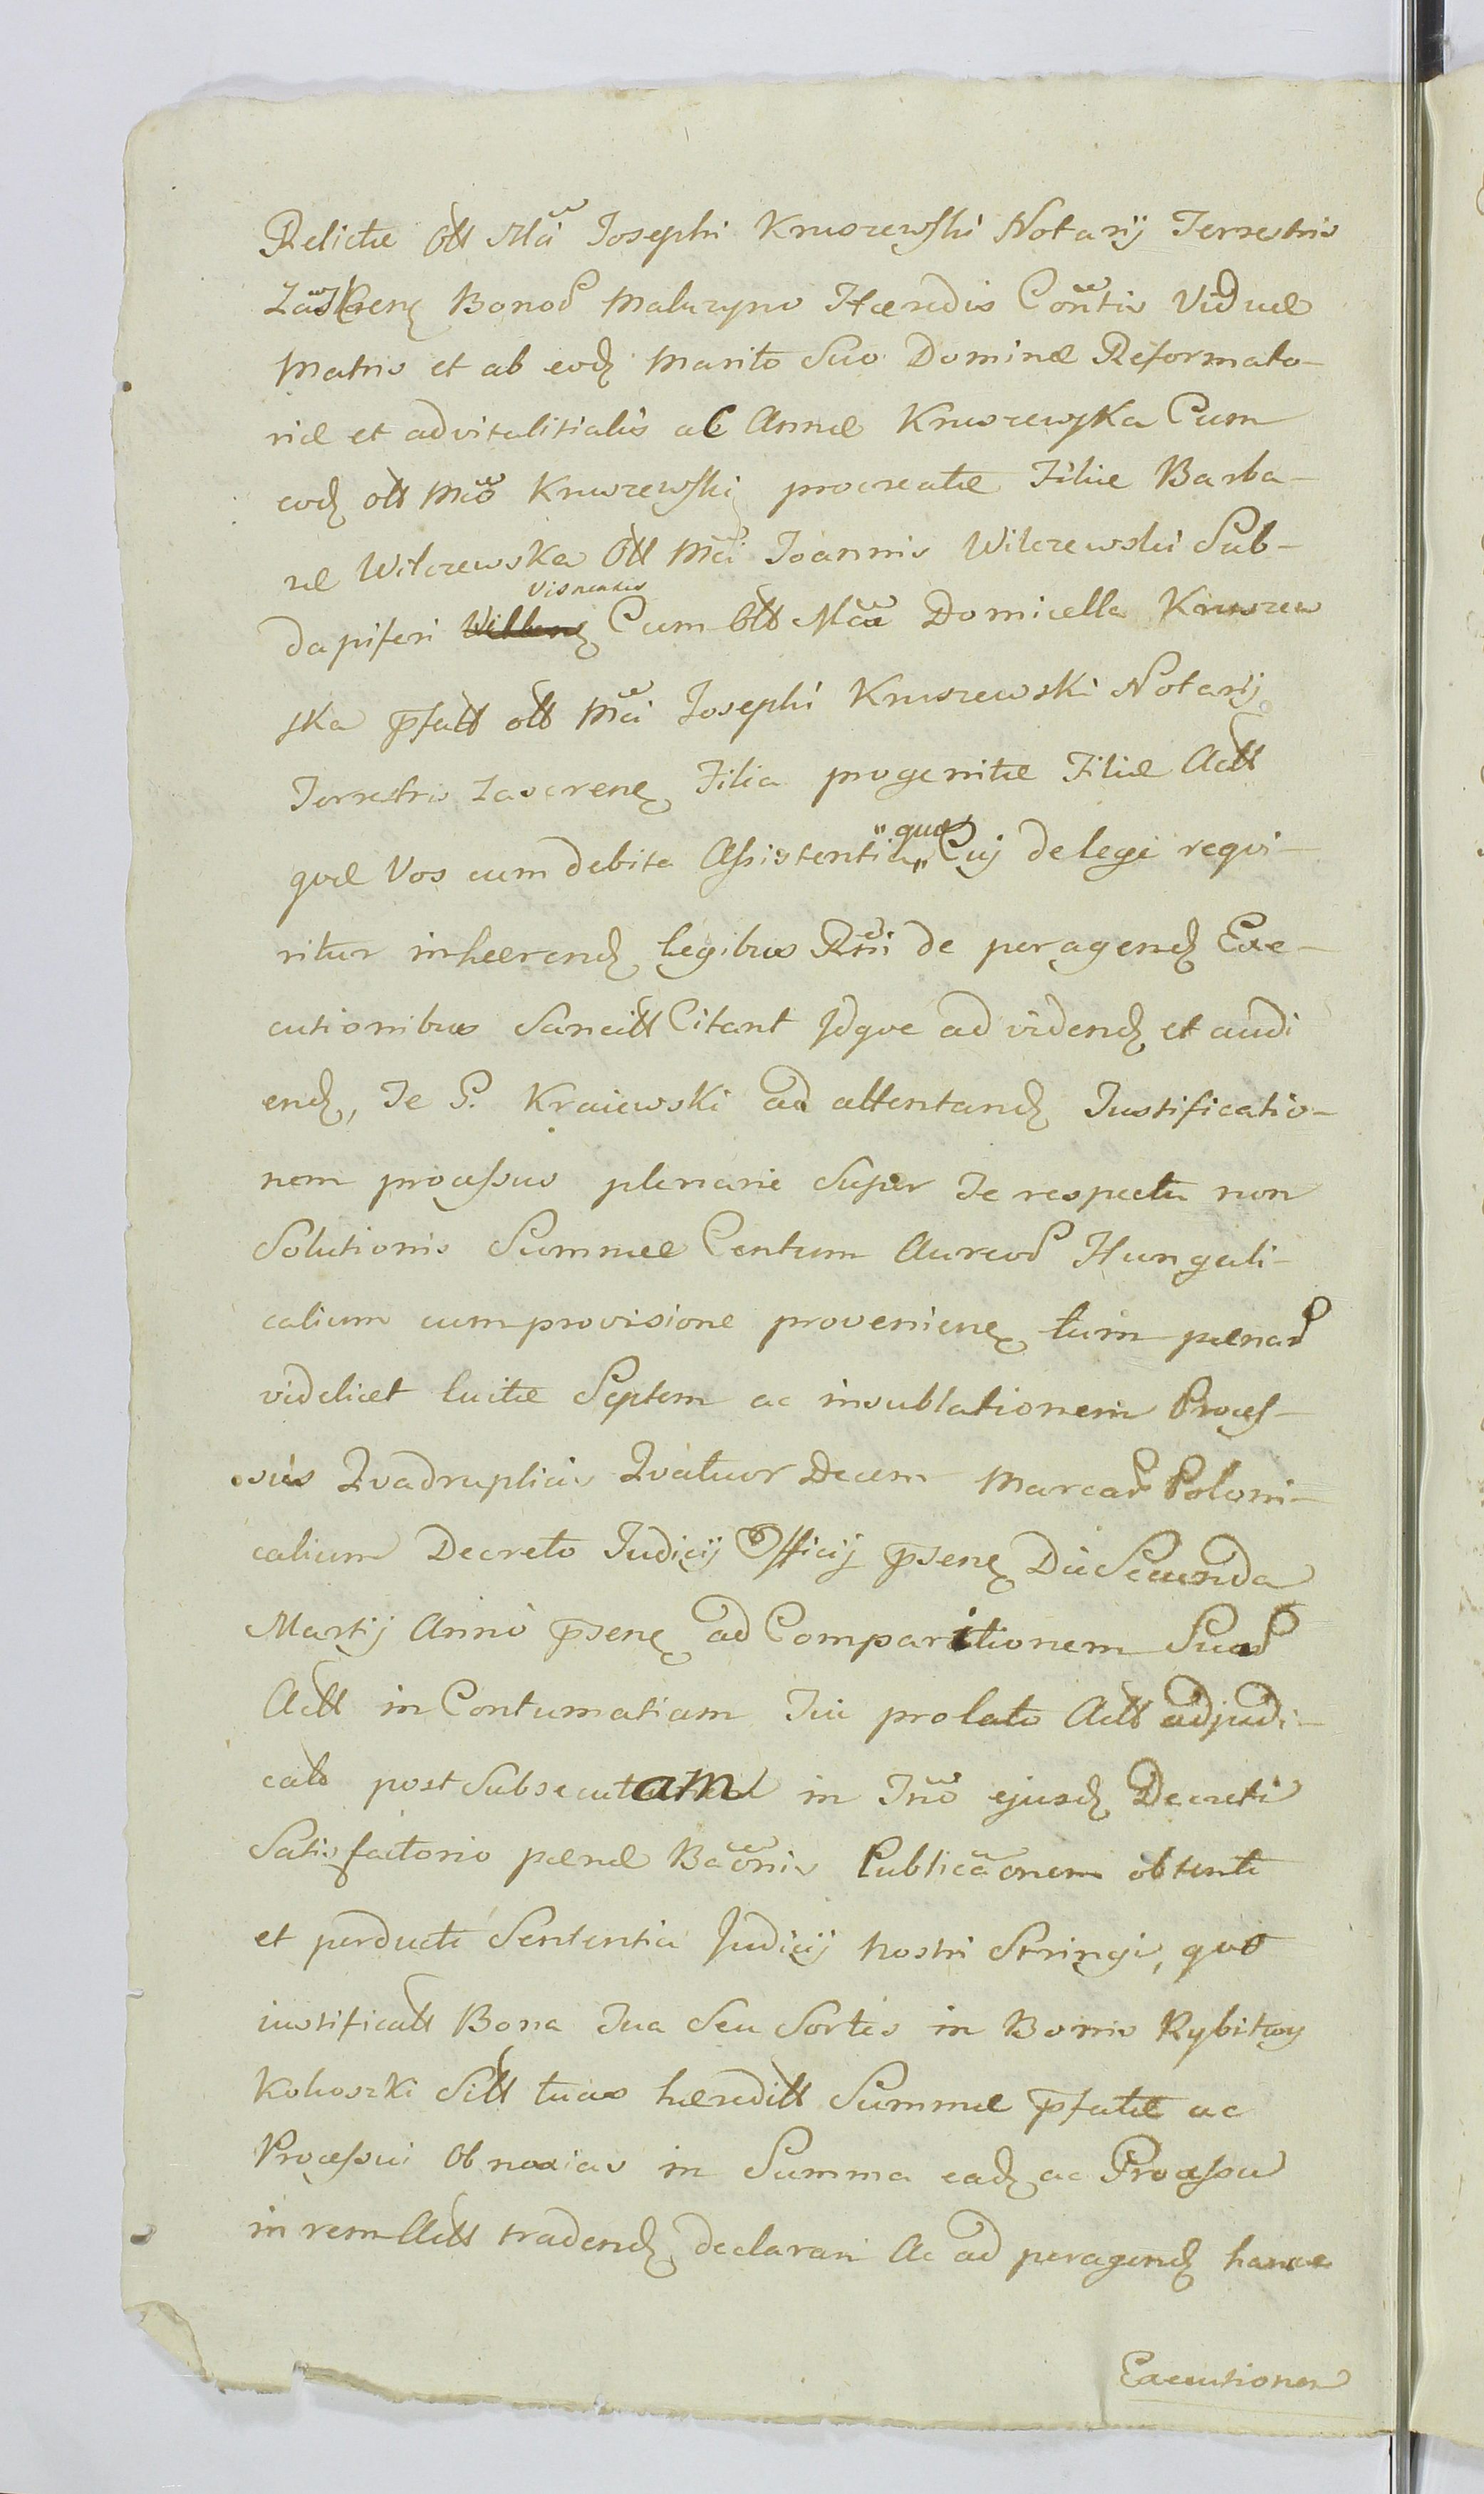 Relictæ Olt Mci Josephi Kruszewski Notarij Terrestris
Zãskrenς Bonoꝝ Maluzyno Hæredis Contis Viduæ
Matris et ab eodꝫ Marito Suo Dominæ Reformato-
riæ et advitalitialis ac Annæ Kruszewska Cum
eodꝫ olt Mco Kruszewski procreatæ Filiæ Barba-
ræ Wilczewska Olt Mci Joannis Wilczewski Sub-
Visnensis
dapiferi Cum Olt Mca Domicella Kruszew
ska pfatt olt Mci Josephi Kruszewski Notarij
Terrestris Zascrenς Filia progenitæ Filiæ Actt
quæ
qvæ Vos cum debita Assistentia „ Cuj de lege reqvi-
ritur inhærendꝫ legibus Rni de peragendꝫ Exe-
cutionibus Sancitt Citant Jdqve ad videndꝫ et audi
endꝫ, Te G. Kraiewski ad attentandꝫ Justificatio-
nem processus plenarie Super Te respectu non
Solutionis Summæ Centum Aureoꝝ Hungali-
calium cum provisione provenienς tum pænaꝝ
videlicet luitæ Septem ac insublationem Proces-
sus Qvadruplicis Qvatuor Decem Marcaꝝ Poloni-
calium Decreto Judicij Officij psenς Die Secunda
Martij Anno psenς ad Comparitionem Suaꝝ
Actt in Contumatiam Tui prolato Actt adjudi-
cato post Subsecutam in Tno ejusdꝫ Decreti
Satisfactorio pænæ Baonis Publicaonem obtente
et perducte Sententia Judicij nostri Stringi, qvo
iustificatt Bona Tua Seu Sortes in Bonis Rybitwy
Kokoszki Sitt tuas hæreditt Summæ pfatæ ac
Processui Obnoxias in Summa eadꝫ ac Processu
in rem Actt tradendꝫ declarari Ac ad peragendꝫ hance
Executionem